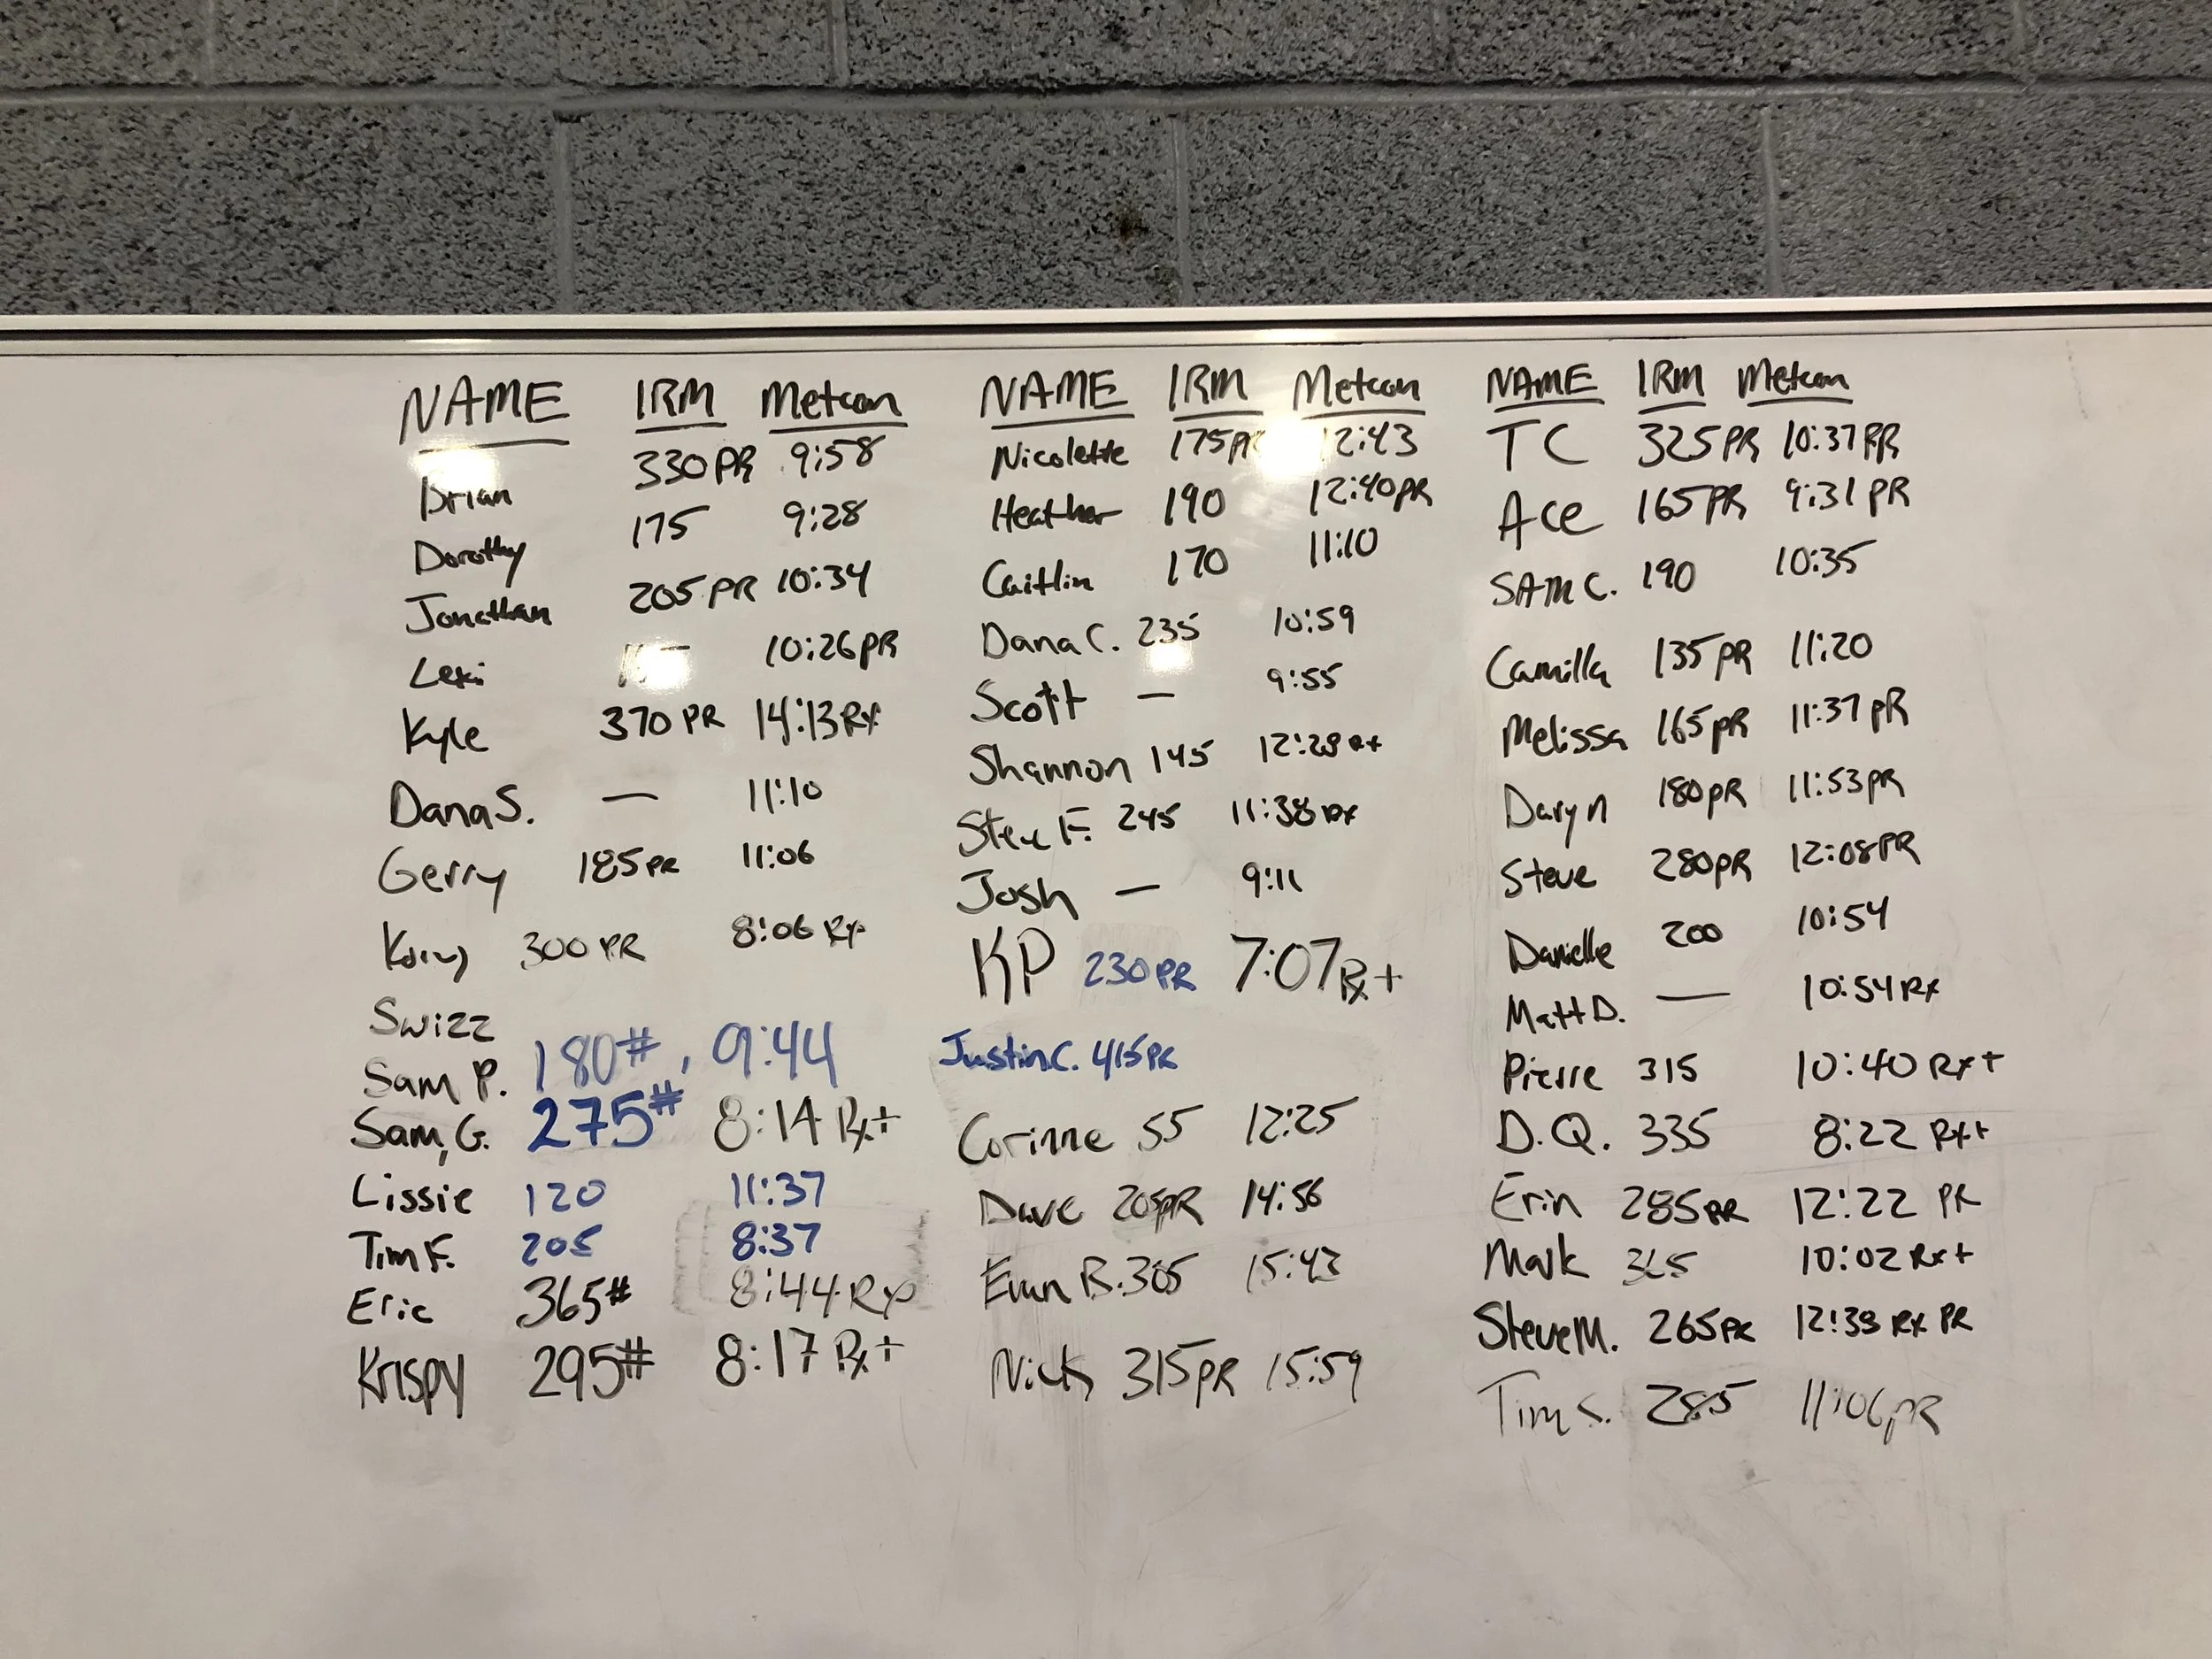 NAME 1RM Metcon
Brian 330PR 9:58
Dorothy 175 9:28
Jonathan 205PR 10:34
Lexi 10:26PR
Kyle 370PR 14:13Rx
Dana S. — 11:10
Gerry 185PR 11:06
300PR 8:06 Rx
Swizz
Sam P. 180#, 9:44
Sam G. 275# 8:14 Rx+
Lissie 120 11:37
Tim F. 205 8:37
Eric 365# 8:44 Rx
Krispy 295# 8:17 Rx+
NAME 1RM Metcon
Nicolette 175PR 12:43
Heather 190 12:40PR
Caitlin 170 11:10
Dana C. 235 10:59
Scott — 9:55
Shannon 145 12:28 Rx
Steve F. 245 11:38 Rx
Josh — 9:11
KP 230PR 7:07Rx+
Justin C. 415PR
Corinne 55 12:25
Dave 205PR 14:56
Evan B. 305 15:43
Nick 315PR 15:59
NAME 1RM Metcon
TC 325PR 10:37PR
Ace 165PR 9:31PR
SAM C. 190 10:35
Camilla 135PR 11:20
Melissa 165PR 11:37PR
Daryn 180PR 11:53PR
Steve 280PR 12:08PR
Danielle 200 10:54
Matt D. — 10:54Rx
Pierre 315 10:40 Rx+
D.Q. 335 8:22 Rx+
Erin 285PR 12:22 PR
Mark 10:02 Rx+
Steve M. 265PR 12:39 Rx PR
Tim S. 285 11:06PR